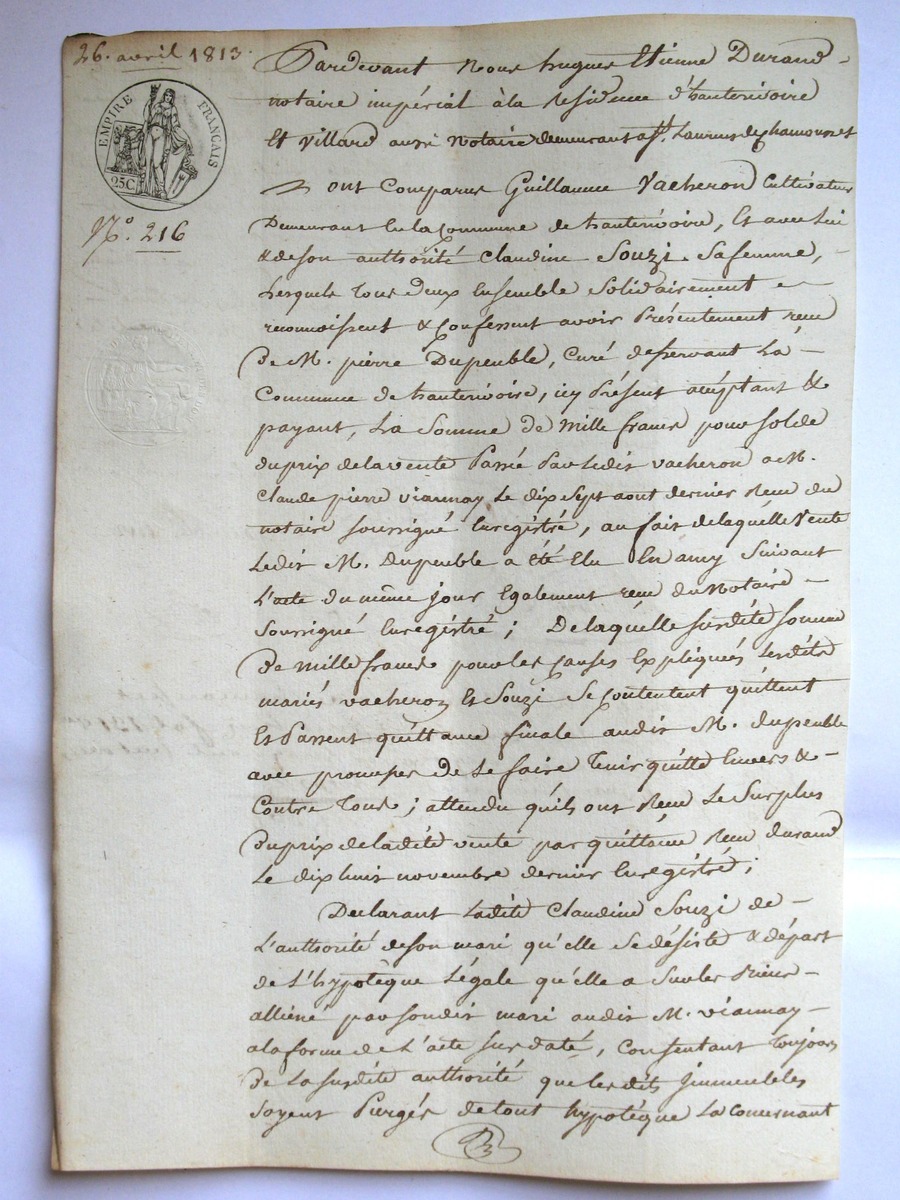 26. avril 1813.
EMPIRE FRANÇAIS
25C
N.o 216
Pardevant Nous hugues Etienne Durand -
notaire impérial à la Residence d'hauterivoire
Et Villard aussi Notaire demeurant a St. Laurent de Chamousset
ont Comparus Guillaume Vacheron Cultivateur
Demeurant En la Commune de hauterivoire, Et avec lui
& de son authorité Claudine Souzi Sa femme,
Lesquels tous deux Ensemble Solidairement
reconnoissent & Confessent avoir Présentement reçu
De M. pierre Dupeuble, Curé deservant La -
Commune de hauterivoire, icy Présent acceptant &
payant, La Somme de Mille francs pour Solde
du prix de la vente Passée Par Ledit vacheron a M.
Claude pierre viannay Le dix Sept aout dernier Reçu du
notaire soussigné Enregistré, au fait de laquelle Vente
Ledit M. dupeuble a été Elu En amy Suivant
L'acte du même jour Egalement reçu du Notaire -
Soussigné Enregistré ; De laquelle susdite somme
De mille francs pour les Causes Expliquées Lesdits
mariés vacheron Et Souzi Se Contentent quittent
Et Passent quittance finale audit M. dupeuble
avec promesse de Le faire Tenir quitte Envers &
Contre Tous ; attendu qu'ils ont Reçu Le Surplus
Du prix de ladite vente par quittance Reçu durand
Le dix huit novembre dernier Enregistré ;
Declarant Ladite Claudine Souzi de -
L'authorité de son mari qu'elle Se désiste & départ
de L'hypotèque Légale qu'elle a Sur les Biens -
alliené par Son dit mari audit M. viannay -
a la forme de L'acte Sus daté, Consentant Toujours
De La Susdite authorité que lesdits Jmmeubles
Soyent Purgés de tout hypotèque La Concernant